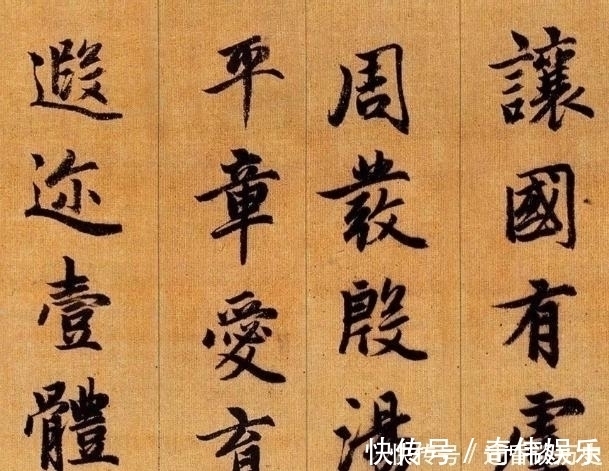 讓國有虞
周發殷湯
平章愛育
遐迩壹體
快传号／奇伟娱乐